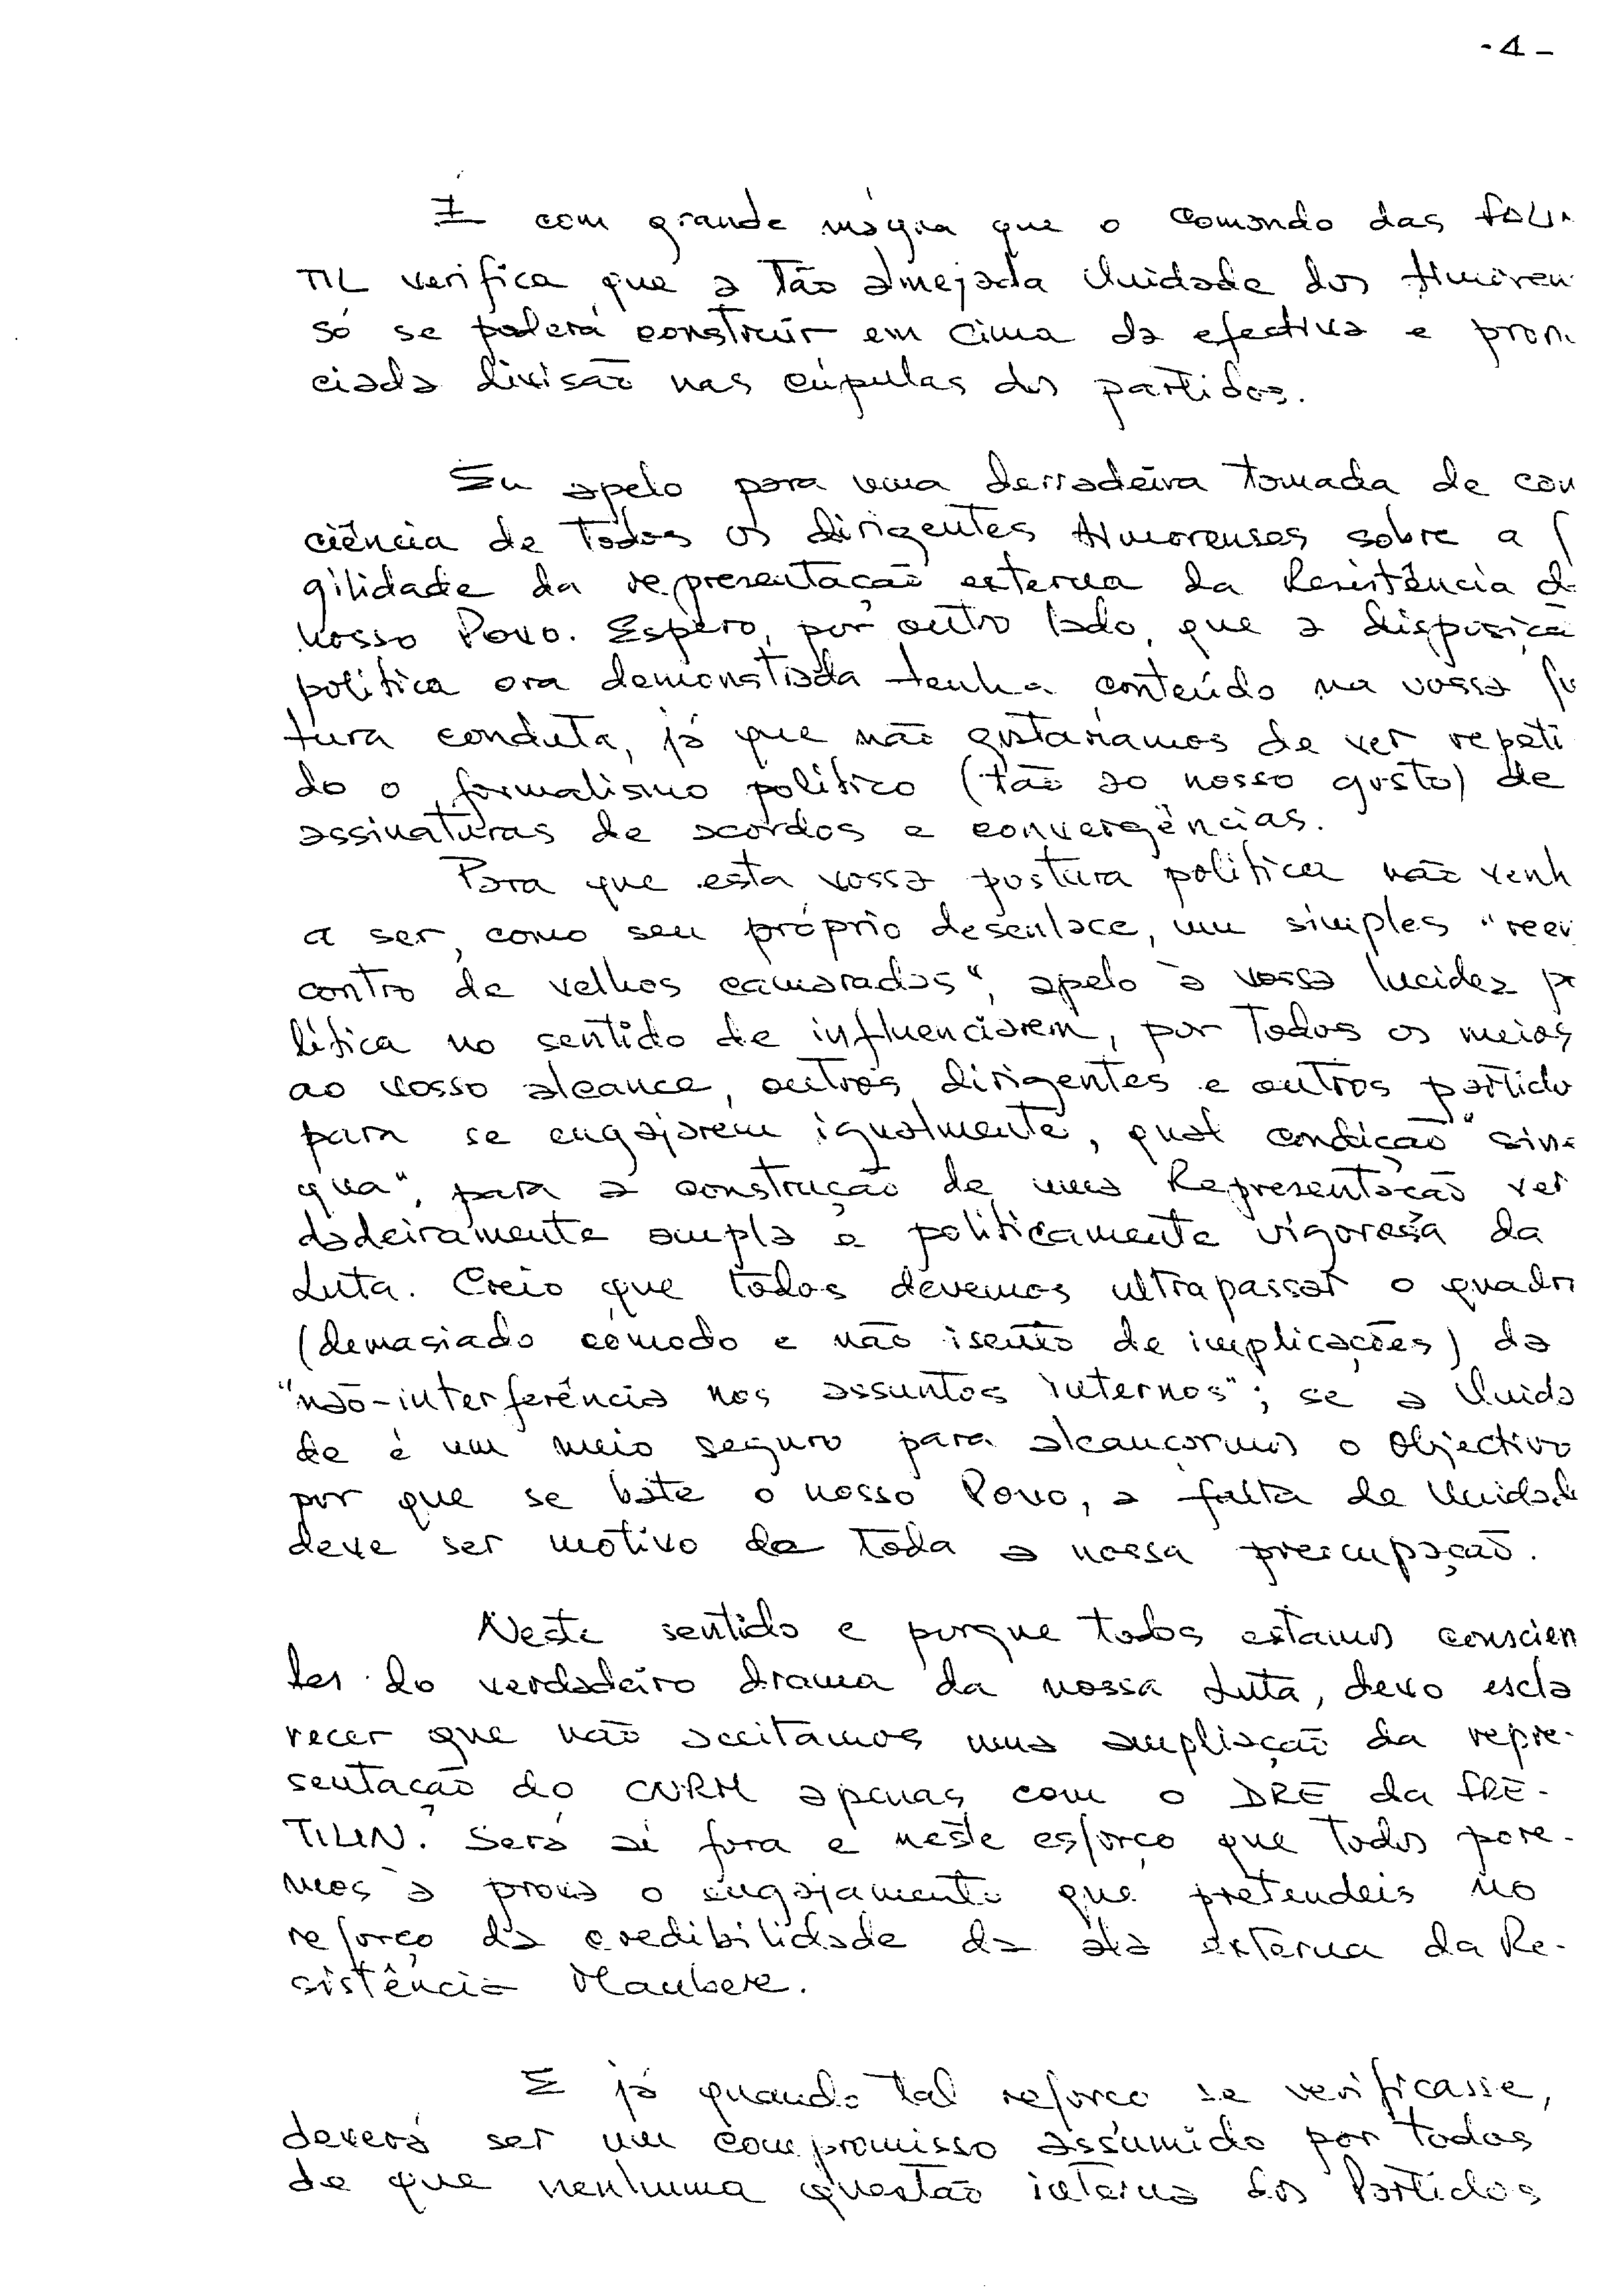 - 4 -
É com grande mágua que o Comando das FALIN
TIL verifica que a tão almejada Unidade dos timoren
só se poderá construir em cima da efectiva e pron
ciada divisão nas cúpulas dos partidos.
Eu apelo para uma derradeira tomada de con
ciência de todos os dirigentes timorenses sobre a f
gilidade da representação externa da Resistência d
nosso Povo. Espero, por outro lado, que a disposiçã
política ora demonstrada tenha conteúdo na vossa fu
tura conduta, já que não gostaríamos de ver repeti
do o formalismo político (tão ao nosso gosto) de
assinaturas de acordos e convergências.
Para que esta vossa postura política não venh
a ser, como seu próprio desenlace, um simples "reen
contro de velhos camaradas", apelo à vossa lucidez po
lítica no sentido de influenciarem, por todos os meios
ao vosso alcance, outros dirigentes e outros partido
para se engajarem igualmente, qual condição "sine
qua", para a construção de uma Representação ver
dadeiramente ampla e politicamente vigorosa da
Luta. Creio que todos devemos ultrapassar o quadro
(demasiado cómodo e não isento de implicações) da
"não-interferência nos assuntos internos"; se a Unida
de é um meio seguro para alcançarmos o objectivo
por que se bate o nosso Povo, a falta de Unidade
deve ser motivo de toda a nossa preocupação.
Neste sentido e porque todos estamos conscien
tes do verdadeiro drama da nossa Luta, devo escla
recer que não aceitamos uma ampliação da repre-
sentação do CNRM apenas com o DRE da FRE-
TILIN. Será aí fora e neste esforço que todos pore-
mos à prova o engajamento que pretendeis no
reforço da credibilidade da ala externa da Re-
sistência Maubere.
E já quando tal reforço se verificasse,
deverá ser um compromisso assumido por todos
de que nenhuma questão interna dos Partidos